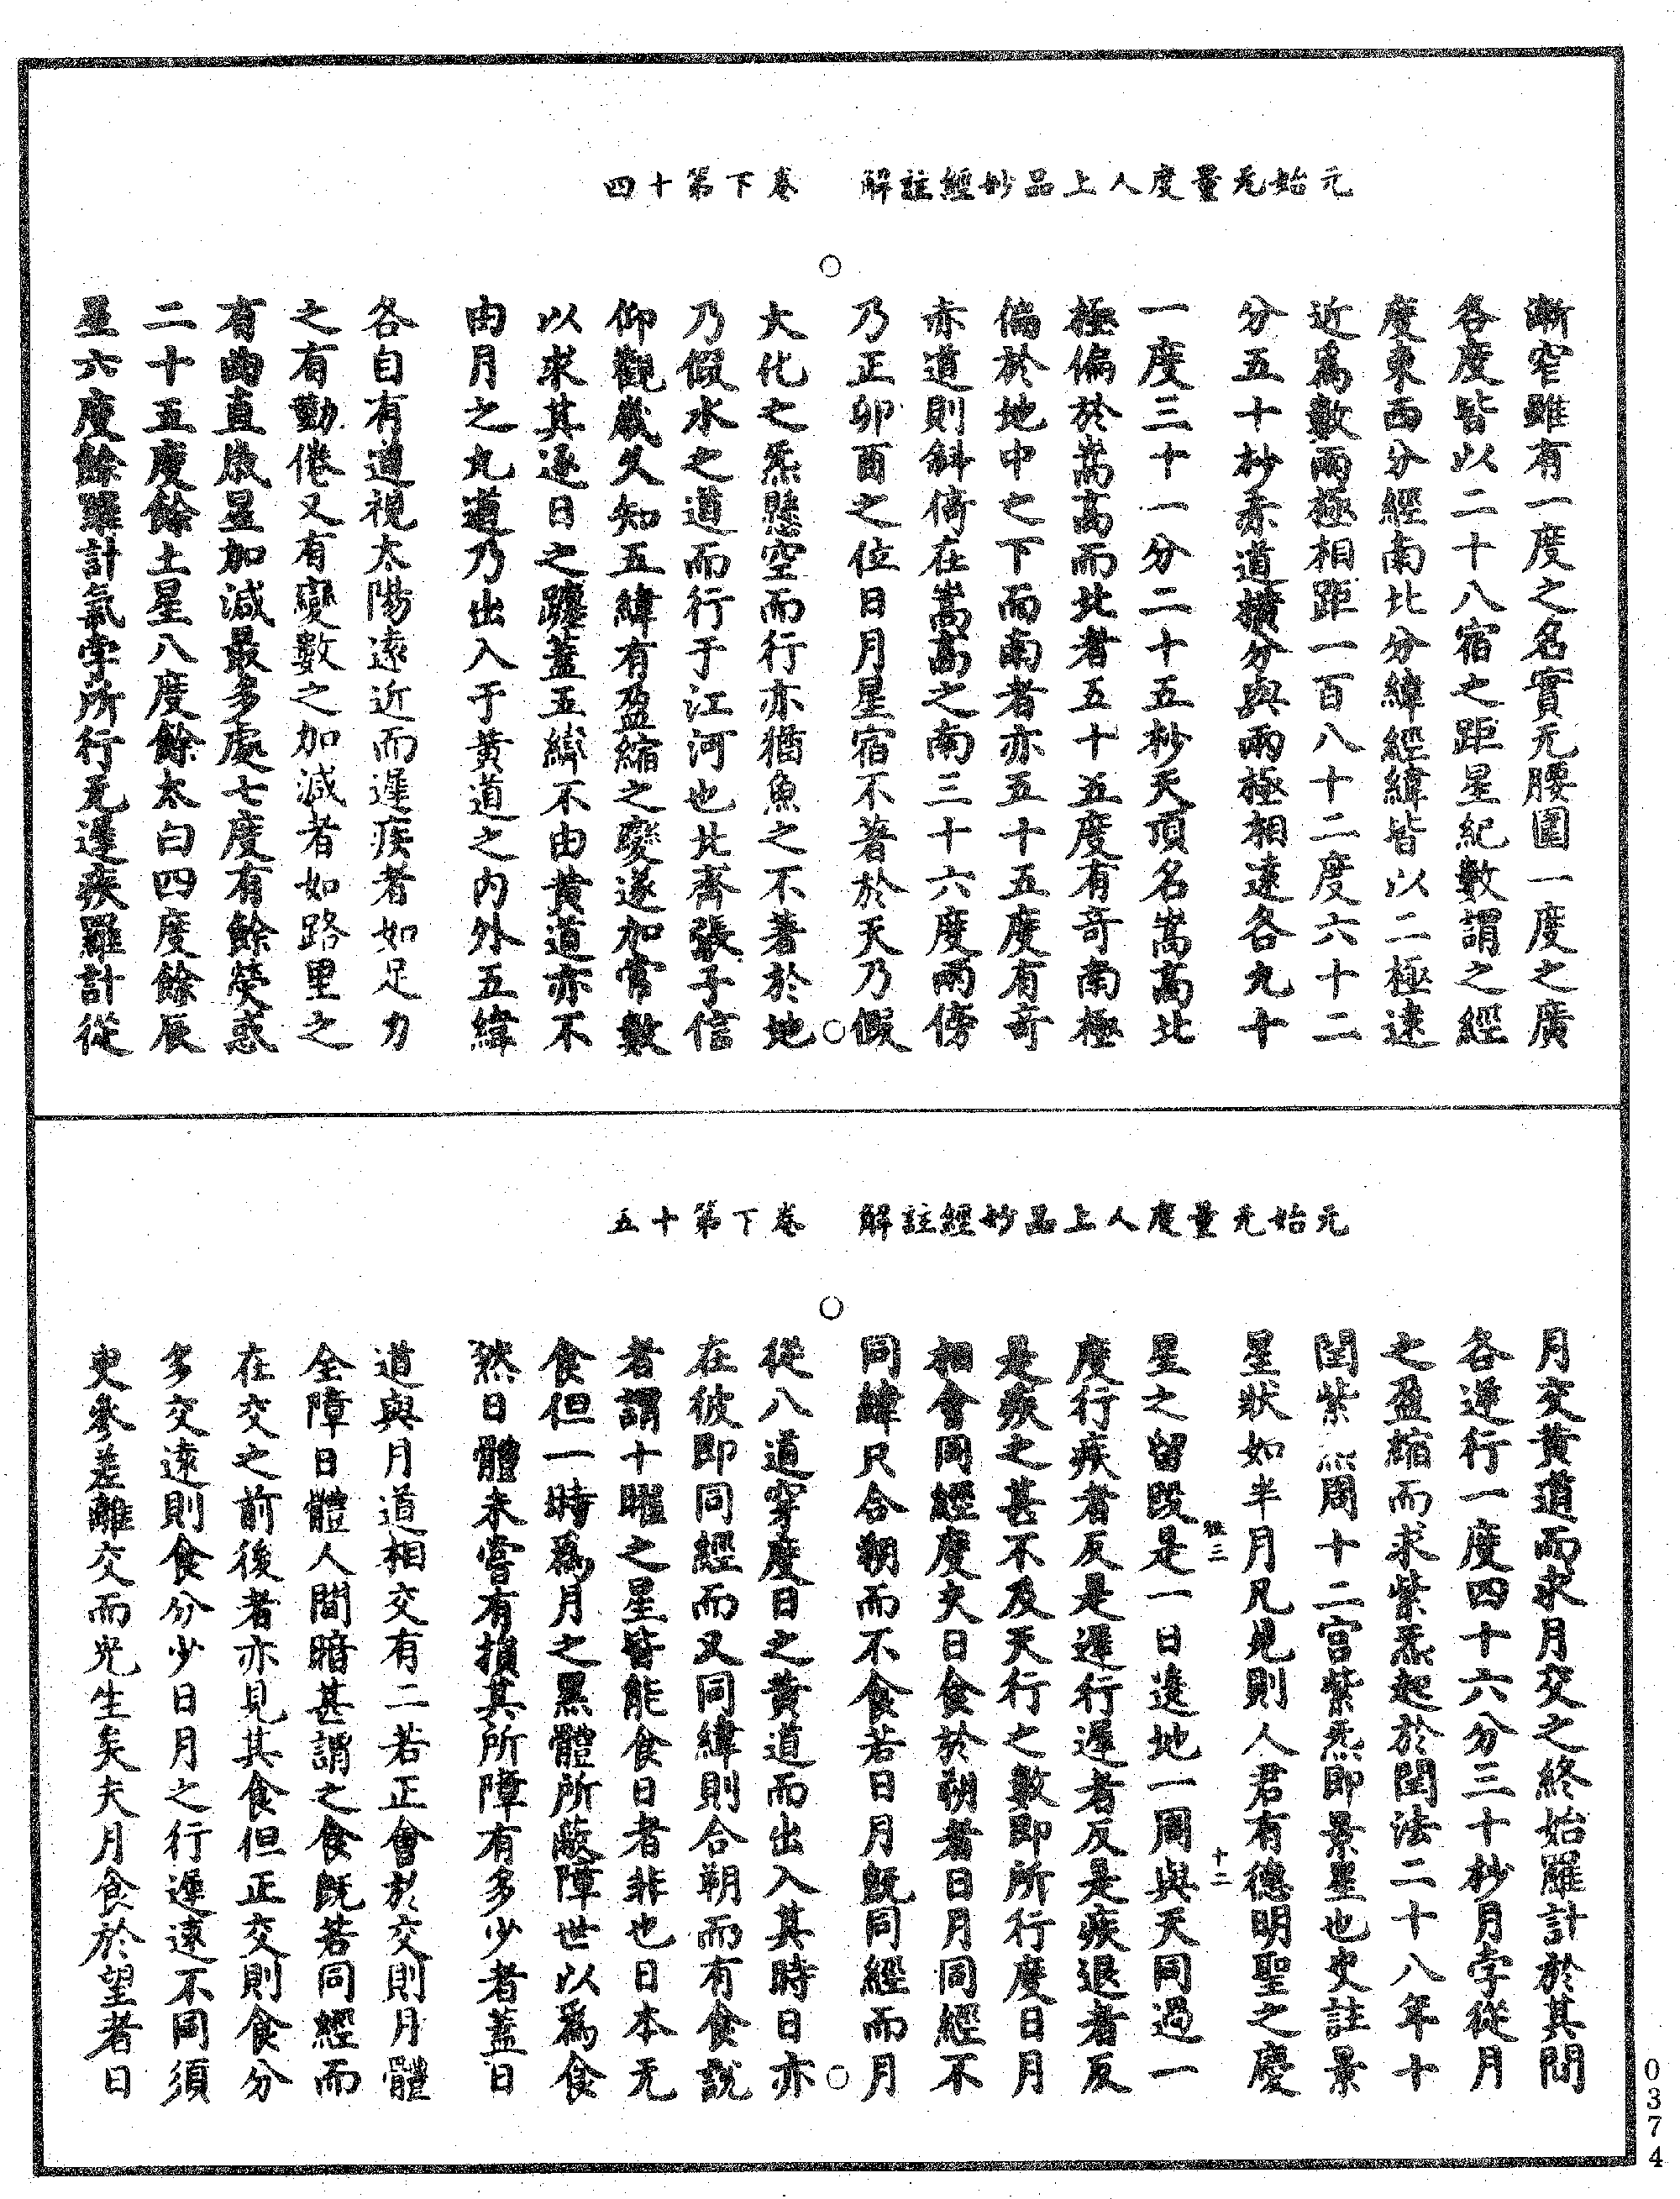 元始无量度人上品妙經註解　卷下第十四
漸窄雖有一度之名實无腰圍一度之廣
各度皆以二十八宿之距星紀數謂之經
度東西分經南北分緯經緯皆以二極遠
近爲數兩極相距一百八十二度六十二
分五十杪赤道橫分與兩極相遠各九十
一度三十一分二十五杪天頂名嵩高北
極偏於嵩高而北者五十五度有奇南極
偏於地中之下而南者亦五十五度有奇
赤道則斜倚在嵩高之南三十六度兩傍
乃正卯酉之位日月星宿不著於天乃假
大化之炁懸空而行亦猶魚之不著於地
乃假水之道而行于江河也北齊張子信
仰觀歲久知五緯有盈縮之變遂加常數
以求其逐日之躔蓋五緯不由黃道亦不
由月之九道乃出入于黃道之內外五緯
各自有道視太陽遠近而遲疾者如足力
之有勤倦又有變數之加減者如路里之
有曲直歲星加減最多處七度有餘熒惑
二十五度餘土星八度餘太白四度餘辰
星六度餘羅計氣孛所行无遲疾羅計從
元始无量度人上品妙經註解　卷下第十五
月交黃道而求月交之終始羅計於其間
各逆行一度四十六分三十杪月孛從月
之盈縮而求紫炁起於閏法二十八年十
閏紫炁周十二宮紫炁即景星也史註景
星狀如半月凡見則人君有德明聖之慶
星之留段是一日遶地一周與天同過一
度行疾者反是遲行遲者反是疾退者反
是疾之甚不及天行之數即所行度日月
相會同經度夫日食於朔者日月同經不
同緯只合朔而不食若日月旣同經而月
從八道穿度日之黃道而出入其時日亦
在彼即同經而又同緯則合朔而有食說
者謂十曜之星皆能食日者非也日本无
食但一時爲月之黑體所蔽障世以爲食
然日體未嘗有損其所障有多少者蓋日
道與月道相交有二若正會於交則月體
全障日體人間暗甚謂之食旣若同經而
在交之前後者亦見其食但正交則食分
多交遠則食分少日月之行遲速不同須
臾參差離交而光生矣夫月食於望者日
三
十二
0374